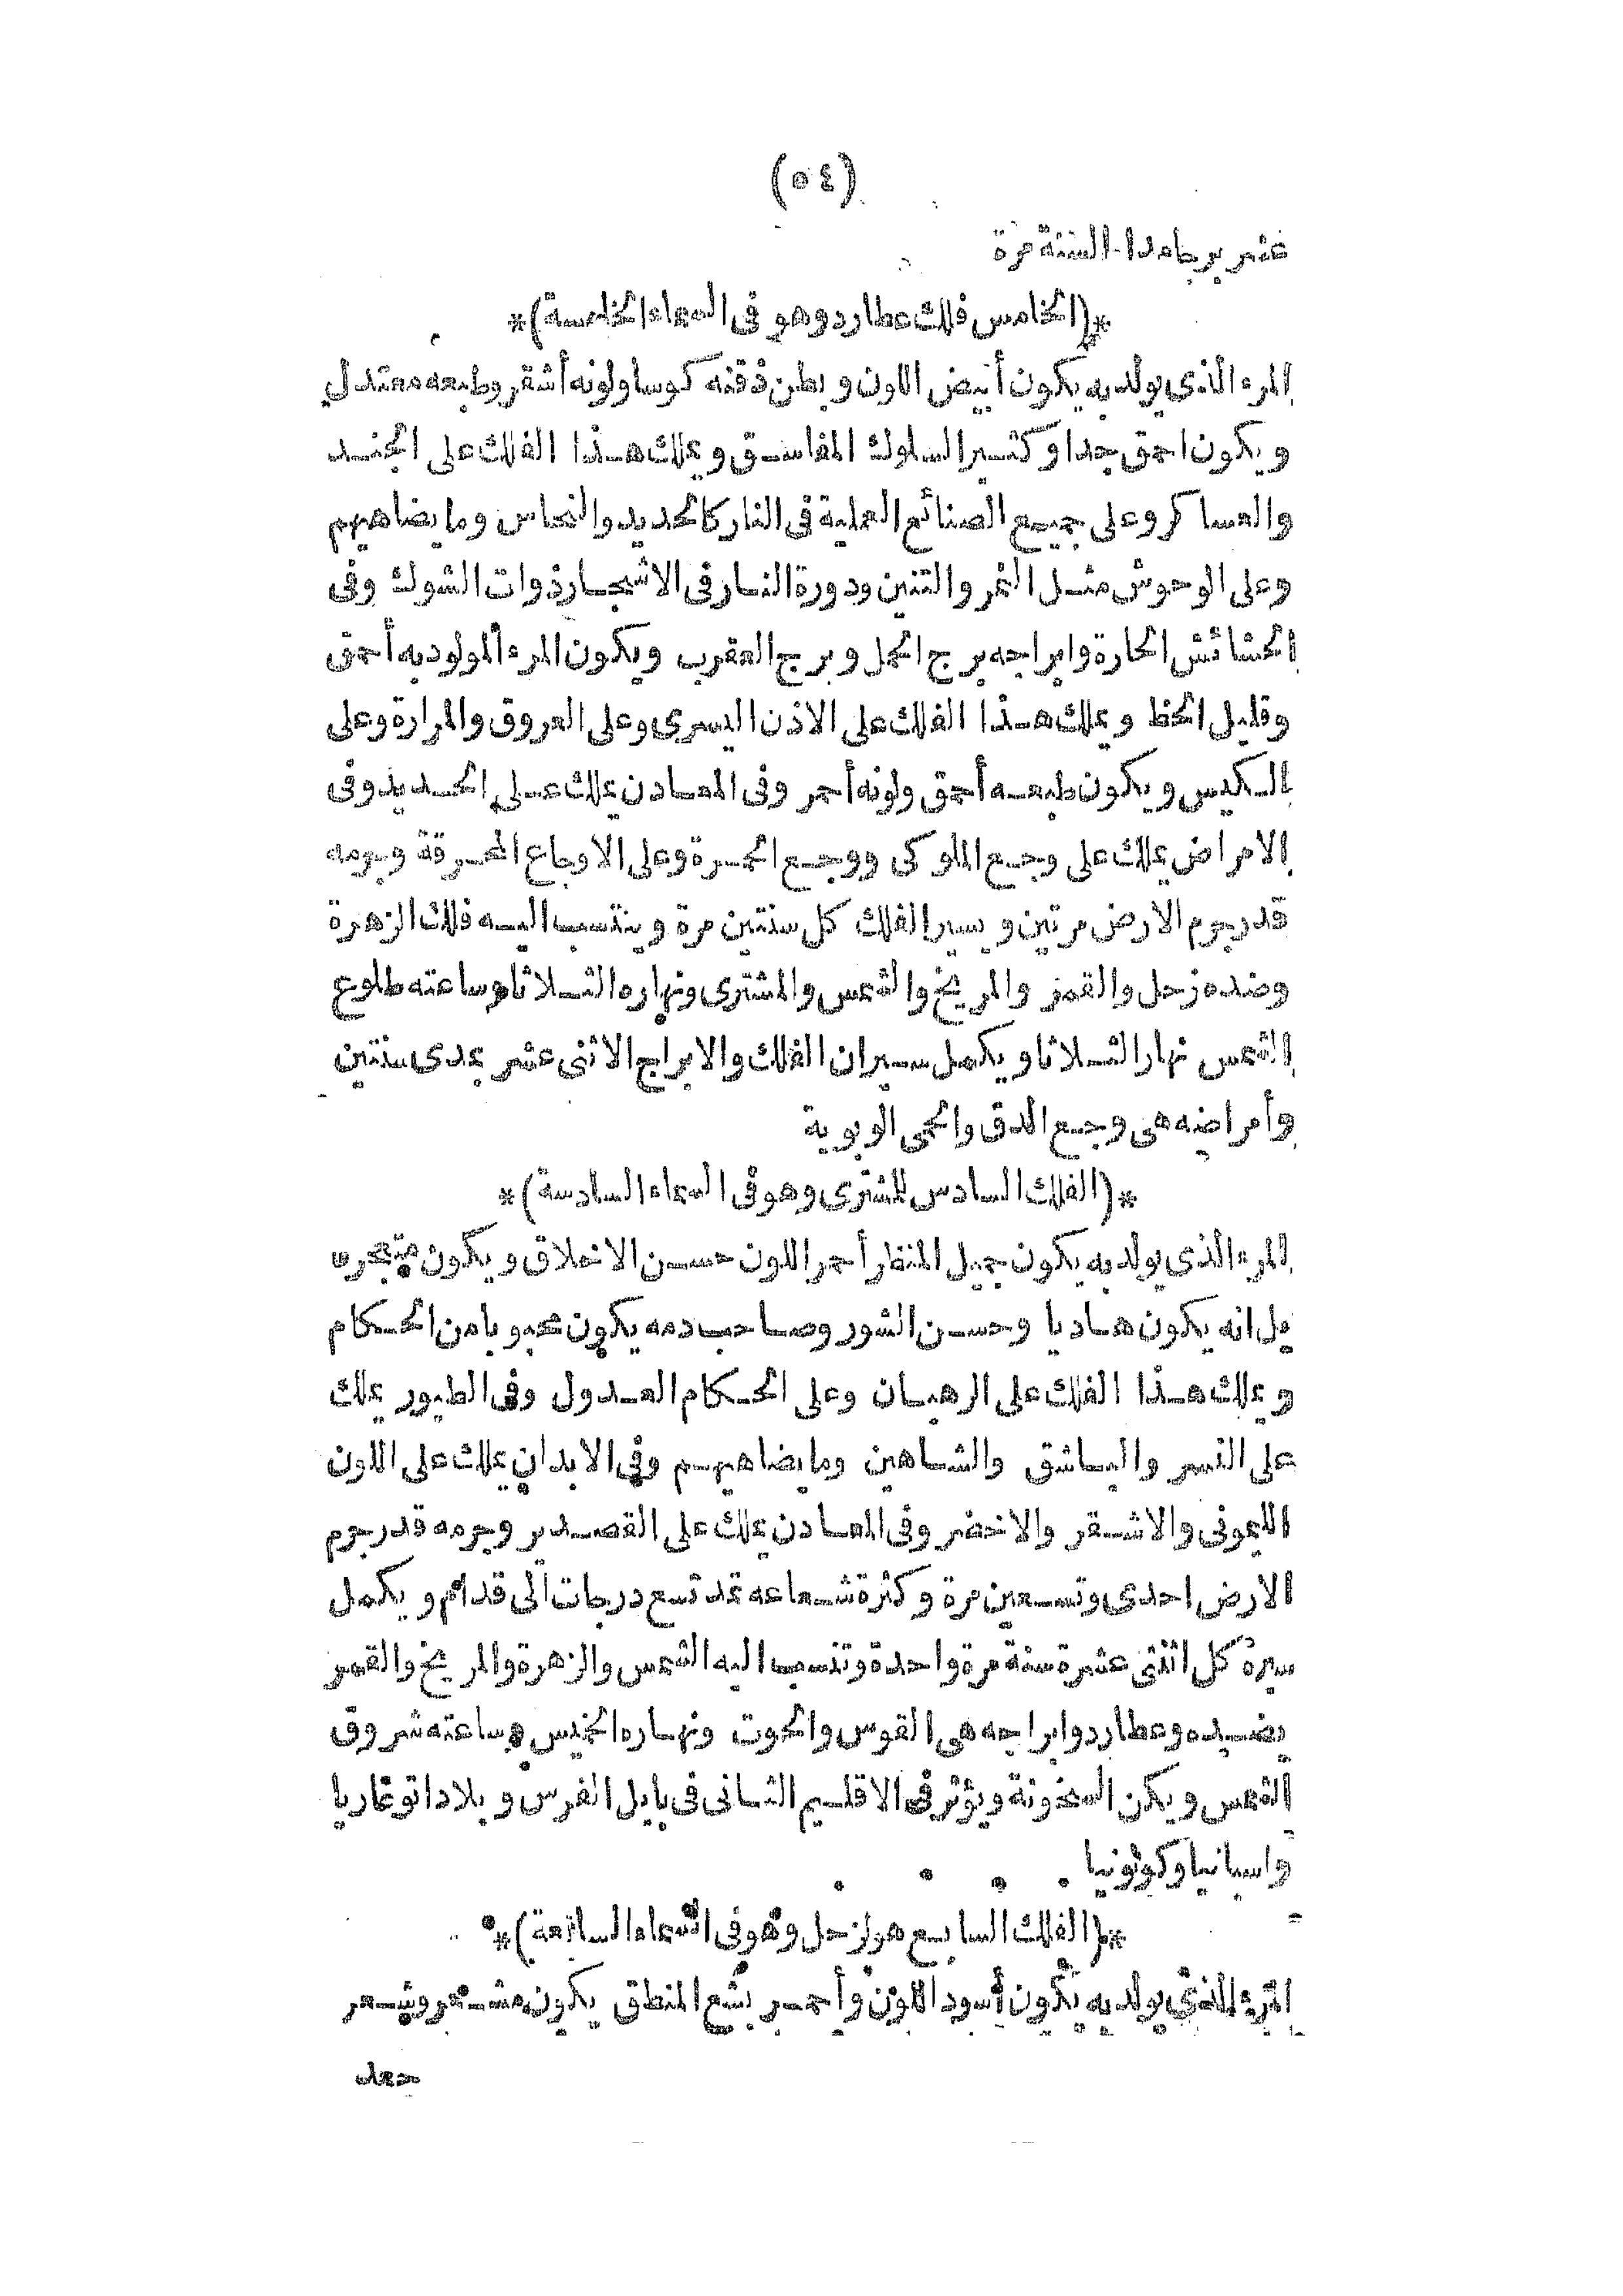 (٥٤)
عشر برجا مدا السنة مرة
*(الخامس فلك عطارد وهو فى السماء الخامسة)*
المرء الذى يولد به يكون أبيض اللون و بطن ذقنه كوسا ولونه أشقر وطبعه معتدل
و يكون احمق جدا وكثير السلوك المفاسق و يملك هذا الفلك على الجند
والعساكر وعلى جميع الصنائع العملية فى النار كالحديد والنحاس وما يضاهيهم
وعلى الوحوش مثل النمر والتنين ودورة النار فى الاشجار ذوات الشوك وفى
الحشائش الحارة وابراجه برج الحمل وبرج العقرب ويكون المرء المولود به أحمق
وقليل الحظ و يملك هذا الفلك على الاذن اليسرى وعلى العروق والمرارة وعلى
الكيس ويكون طبعه أحمق ولونه أحمر وفى المعادن يملك على الحديد وفى
الامراض يملك على وجع الملوكى ووجع الحمرة وعلى الاوجاع المحرقة وجرمه
قدر جرم الارض مرتين و يسير الفلك كل سنتين مرة و ينتسب اليه فلك الزهرة
وضده زحل والقمر والمريخ والشمس والمشترى ونهاره الثلاثا وساعته طلوع
الشمس نهار الثلاثا ويكمل سيران الفلك والابراج الاثنى عشر بمدى سنتين
وأمراضه هى وجع الدق والحمى الوبوية
*(الفلك السادس للمشترى وهو فى السماء السادسة)*
المرء الذى يولد به يكون جميل المنظر أحمر اللون حسن الاخلاق ويكون
بل انه يكون هاديا وحسن الشور وصاحب دمه يكون محبوبا من الحكام
و يملك هذا الفلك على الرهبان وعلى الحكام العدول وفى الطيور يملك
على النسر والباشق والشاهين وما يضاهيهم وفى الابدان يملك على اللون
الليمونى والاشقر والاخضر وفى المعادن يملك على القصدير وجرمه قدر جرم
الارض احدى وتسعين مرة وكثرة شعاعه تمد تسع درجات الى قدام و يكمل
سيره كل اثنتى عشرة سنة مرة واحدة وتنسب اليه الشمس والزهرة والمريخ والقمر
بضده وعطارد وابراجه هى القوس والحوت ونهاره الخميس وساعته شروق
الشمس ويكن السخونة ويؤثر فى الاقليم الثانى فى بابل الفرس و بلاد انوغاريا
واسبانيا وكولونيا
*(الفلك السابع هو لزحل وهو فى السماء السابعة)*
المرء الذى يولد به يكون أسود اللون وأحمر بشع المنطق يكون مشعر وشعر
جعد